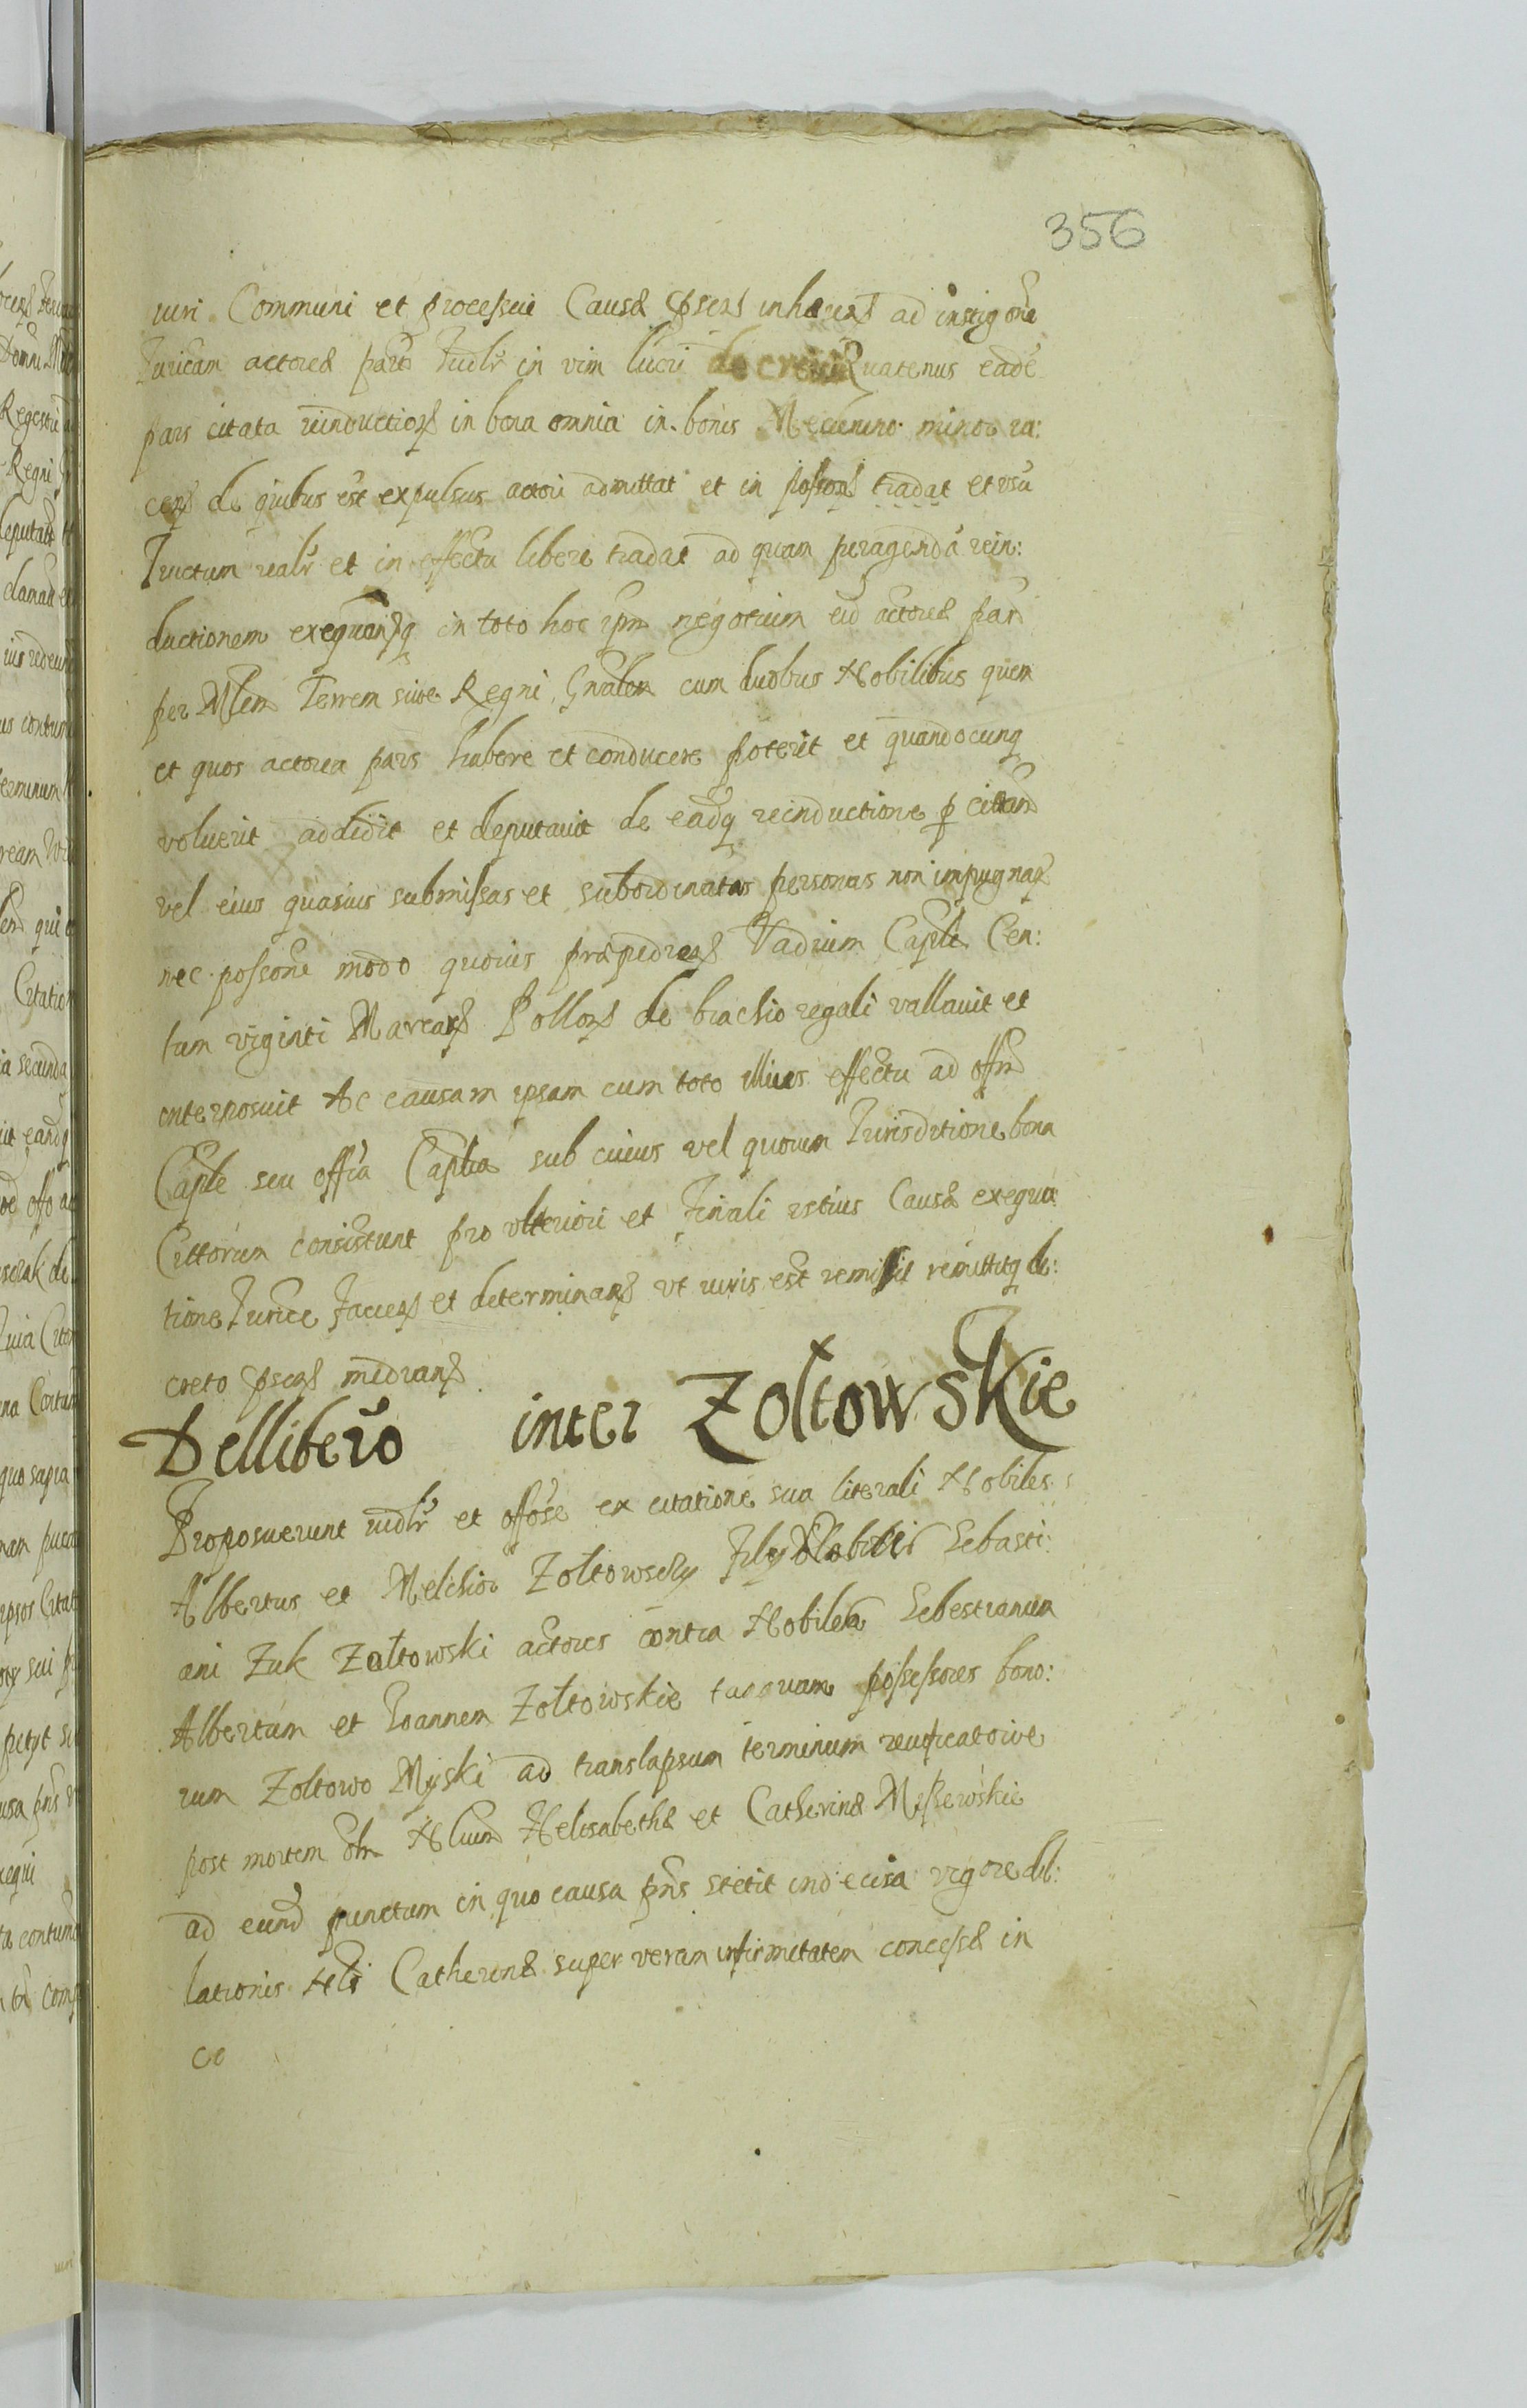 356
iuri Communi et processui Causæ pserƷ inhærerƷ ad instigoñe
Iuricam actoreæ partis Iudlr in vim lucri decrevit Quatenus eadē
pars citata reinductiorƷ in bona omnia in bonis minor ia:
cerƷ de quibus est expulsus actori admittat et in possorƷ tradat et usū
fructum realr et in effectu libere tradat ad quam peragendā rein:
ductionem in toto hoc ipm negotium eid actoreæ par
per Mlem Terrem sive Regni Gnalem cum duobus Nobilibus quem
et quos actorea pars habere et conducere poterit et quandocunq
voluerit addidit et deputavit de eadq reinductione p citam
vel eius quasvis submissas et subordinatas personas non impugnar
nec possone modo quovis præpedierƷ Vadium Caple Cen:
tum viginti MarcarƷ PollorƷ de brachio regali vallavit et
interposuit Ac causam ipsam cum toto illius effectu ad offm
Caple seu offia Caplia sub cuius vel quorum Iurisdctione bona
Cittorum consistunt pro ulteriori et Finali istius Causæ exequu
tione Iurice FacierƷ et determinarƷ ut iuris est remisit remittitq de:
creto pserƷ medianƷ
Dellibero inter Zoltowskie
Proposuerunt iudlr et offose ex citatione sua literali Nobiles
Albertus et Melchior Zoltowscÿ Filÿ Nobilis Sebasti:
ani Zuk Zoltowski actores contra Nobilem Sebestianum
Albertum et Ioannem Zoltowskie tanquam possessores bono:
rum Zoltowo Myski ad translapsum terminum reuificatorive
post mortem olm Nlium Helisabethæ et Catherinæ
ad eund punctum in quo causa pns stetit indecisa vigore dil:
lationis Nlis Catherinæ super veram infirmitatem concessæ in
ce